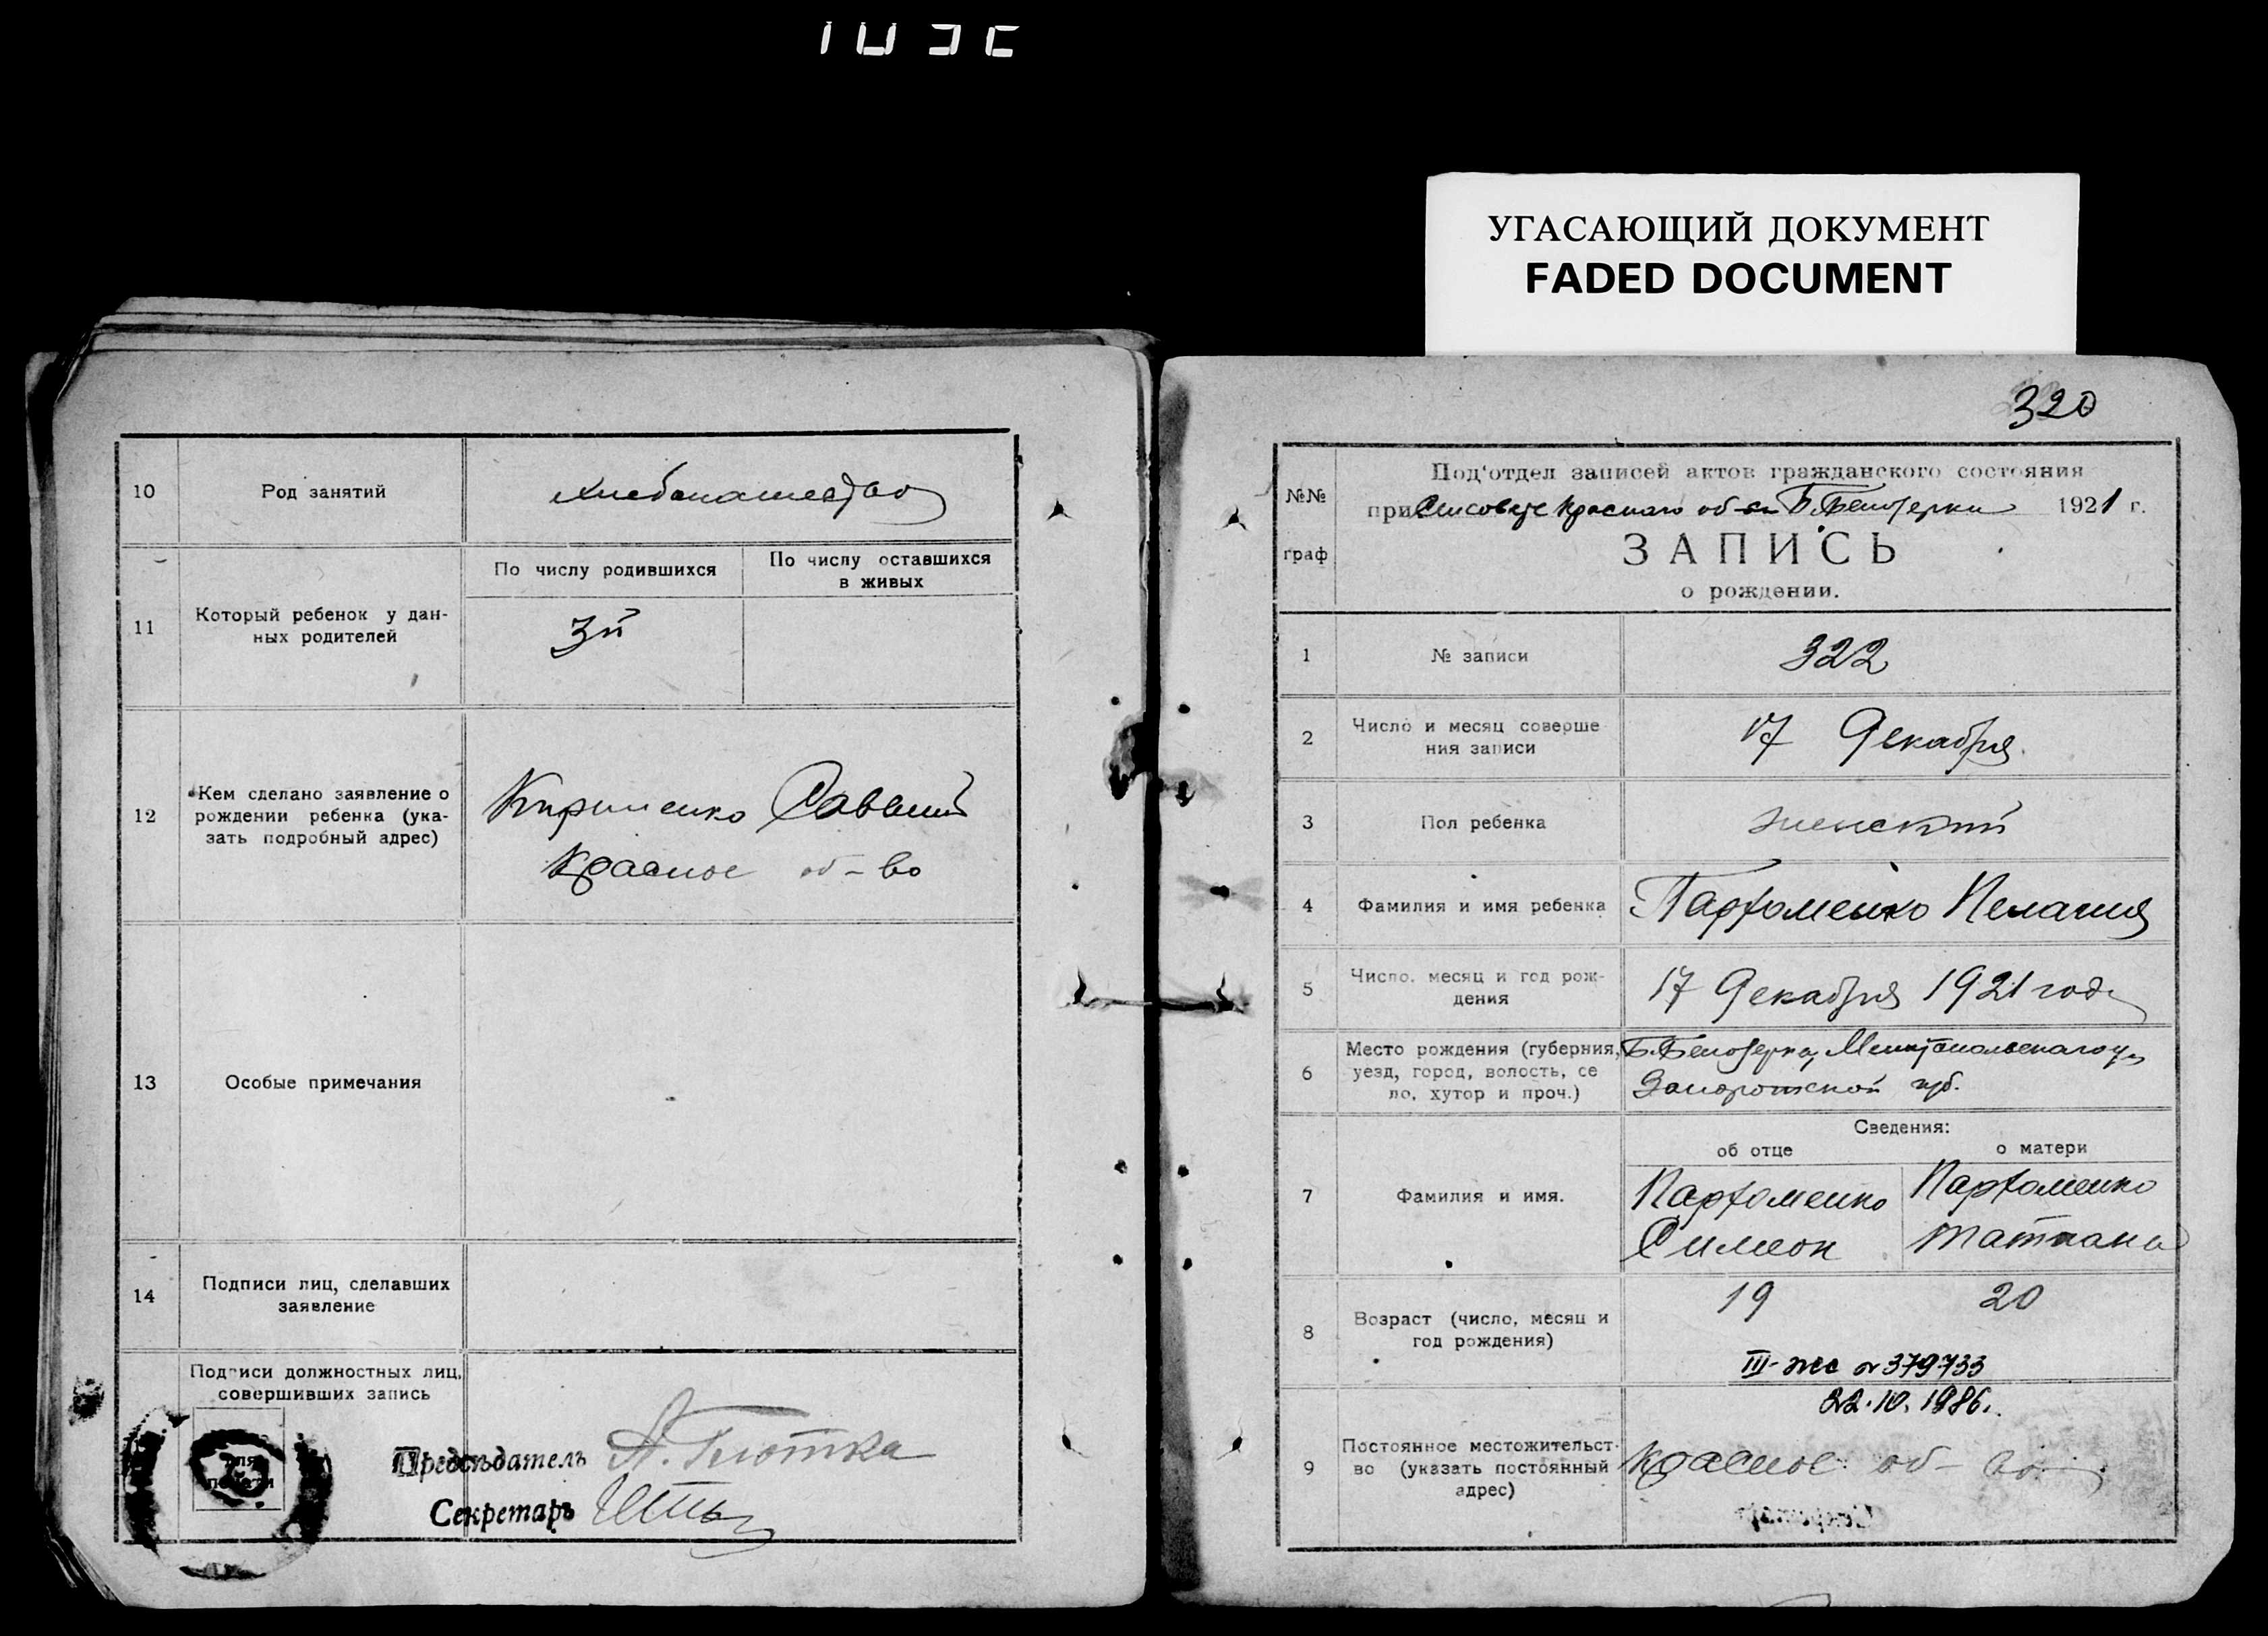 УГАСАЮЩИЙ ДОКУМЕНТ
FADED DOCUMENT
10
Род занятий
хлебопашество
11
Который ребенок у дан-
ных родителей
По числу родившихся
По числу оставшихся
в живых
3й
12
Кем сделано заявление о
рождении ребенка (ука-
зать подробный адрес)
Кириченко Савелий
Красное об-во
13
Особые примечания
14
Подписи лиц, сделавших
заявление
Подписи должностных лиц,
совершивших запись
Для
печати
Председатель
Секретарь
320
№№
граф
Под'отдел записей актов гражданского состояния
при Сельсовете Краснаго об-ва Б. Белозерки 1921 г.
ЗАПИСЬ
о рождении.
1
№ записи
322
2
Число и месяц соверше
ния записи
17 Декабря
3
Пол ребенка
женский
4
Фамилия и имя ребенка
Парфоменко Пелагия
5
Число. месяц и год рож-
дения
17 Декабря 1921 года
6
Место рождения (губерния,
уезд, город, волость, се
ло, хутор и проч.)
Б. Белозерка, Мелитопольскаго у.
Запорожской губ.
Сведения:
об отце
о матери
7
Фамилия и имя.
Парфоменко
Симеон
Парфоменко
Татиана
8
Возраст (число, месяц и
год рождения)
19
20
III-жс № 379733
22.10.1986.
9
Постоянное местожительст-
во (указать постоянный
адрес)
Красное об-во